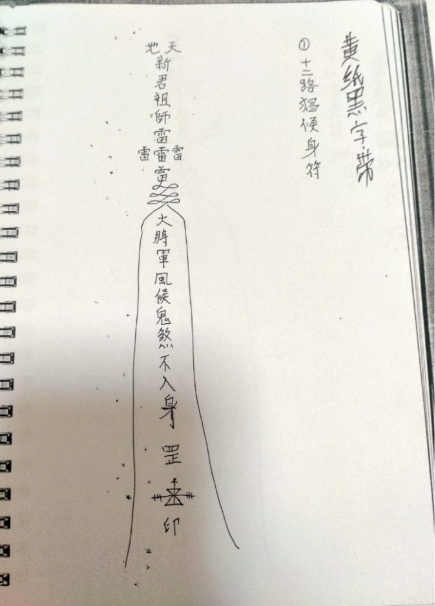 黃紙黑字帶
① 十二路猖候身符
天
地
新君祖師雷
雷雷雷
雷
大將軍風候鬼煞不入身 罡 印